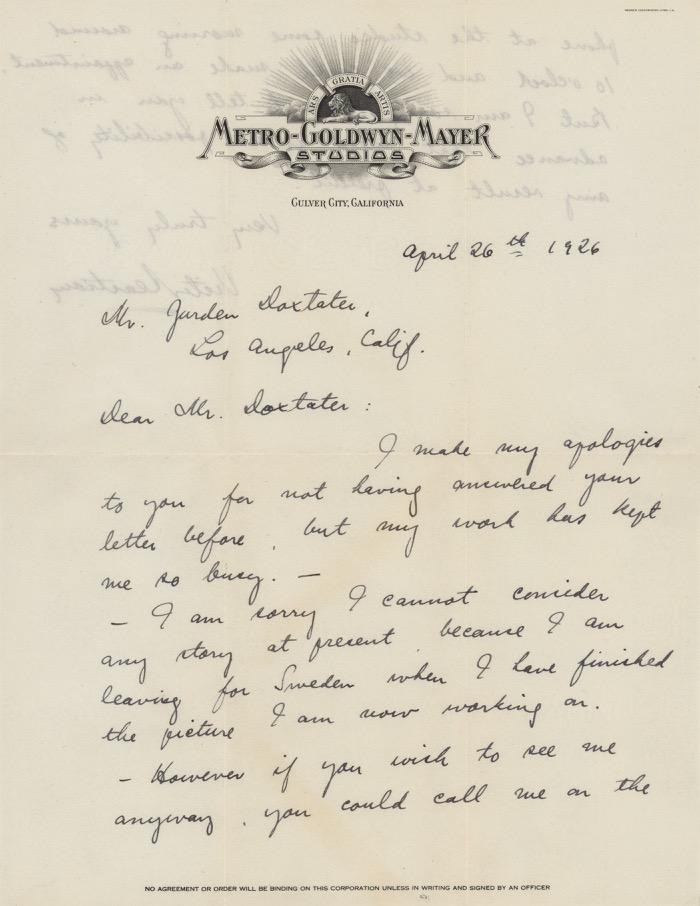 ARS GRATIA ARTIS
METRO-GOLDWYN-MAYER
STUDIOS
CULVER CITY, CALIFORNIA
April 26th 1926
Mr. Jurden Doxtater,
Los Angeles, Calif.
Dear Mr. Doxtater:
I make my apologies
to you for not having answered your
letter before, but my work has kept
me so busy. —
— I am sorry I cannot consider
any story at present, because I am
leaving for Sweden when I have finished
the picture I am now working on.
— However if you wish to see me
anyway, you could call me on the
NO AGREEMENT OR ORDER WILL BE BINDING ON THIS CORPORATION UNLESS IN WRITING AND SIGNED BY AN OFFICER